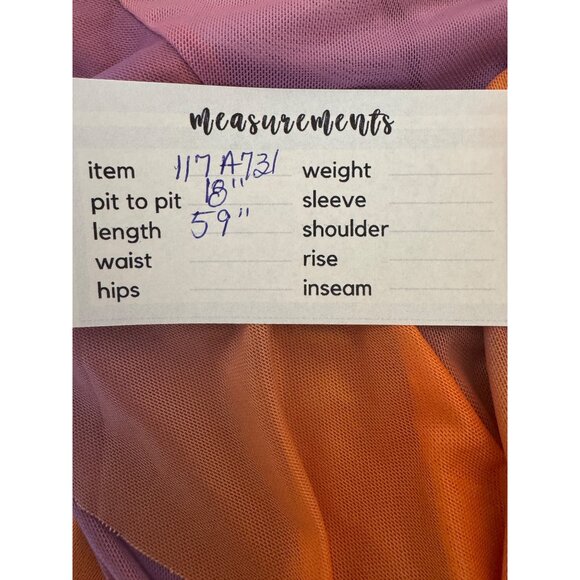 measurements
item 117 A731 weight
pit to pit 18" sleeve
length 59" shoulder
waist rise
hips inseam